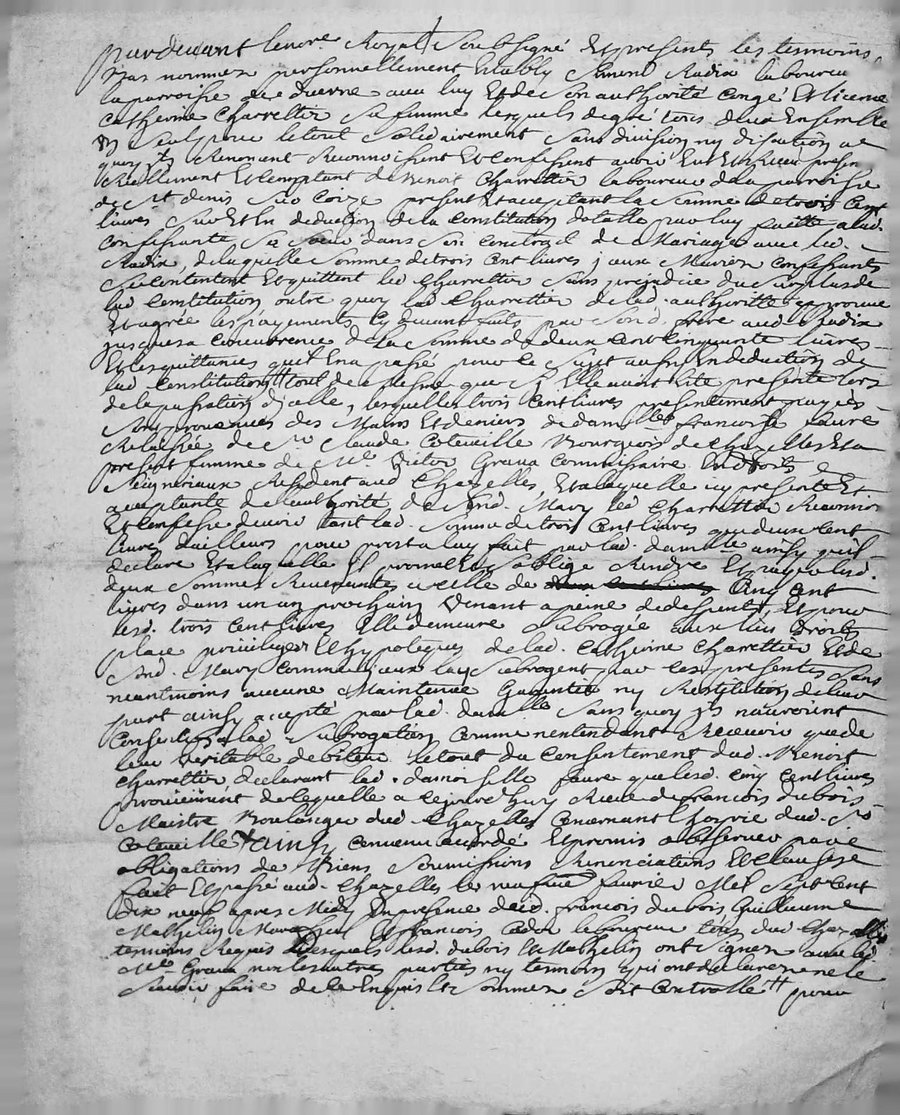 pardevant le nore. Royal Soubsigné Et presents les temoins
bas nommez personnellement Estably Simond Radix laboureur
la parroisse de duerne avec luy Et de Son authorité congé Et licence
Catherine Charrettier Sa femme lesquels de gré tous deux Ensemble
Seul pour le tout Solidairement Sans division ny discution a
quoy Renoncent Reconnoissent Et confessent avoir Eu Et Receu presn
Reellement Et comptant de Benoit Charrettier laboureur de la parroisse
de St. denis Sur Coize present Et acceptant la Somme de trois Cent
livres Sur Et En deduction de la Constitution dotalle par luy faitte a lad.
Confessante Sa Soeur dans Son Contract de Mariage avec led.
Radix de laquelle Somme de trois cent livres jceux Mariez confessants
Se contentent Et quittent led Charrettier Sans prejudice du Surplus de
lad Constitution outre quoy lad Charrettier de lad. authoritté approuve
Et agrée les payements cy devant faits par Sond. frere aud Radix
jusques a concurrence de la Somme de deux cent cinquante livres
Et les quittances quil En a passé pour ce Sujet aussy En deduction de
lad Constitution tout de mesme que Si Elle avoit Esté presente lors
de la passation djcelle, lesquelles trois cent livres presentement payées
Sont provenues des Mains Et deniers de damlle françoise faure
Relaissée de Sr. Claude Coteuille Bourgeois de Chazelles Et a
present femme de Me. Victor Grava Commissaire En droits
Seigneuriaux Resident aud Chazelles, Et a laquelle cy presente Et
acceptante de l'authorité de Sond. Mary led Charrettier Reconnoi
Et confesse devoir tant lad. Somme de trois cent livres que deux cent
livres d'ailleurs pour prest a luy fait par lad. damlle ainsy quil
declare Et a laquelle Il promet Et Soblige Rendre Et payer lesd.
deux Sommes Revenantes a celle de Cinq Cent
livres dans un an prochain Venant a peine de despens, Et pour
lesd. trois Cent livres Elle demeure Subrogée aux lieu Droits
place privileges Et hypoteques de lad. Catherine Charrettier Et de
Sond. Mary comme jceux la Subrogent par ces presentes Sans
neantmoins aucune Maintenue Garantie ny Restitution de leur
part ainsy accepté par lad. damlle Sans quoy jls nauroient
Consenty a lad Subrogation Comme nentendant Recevoir que de
leur veritable debiteur le tout du Consentement dud. Benoit
Charrettier declarant lad. damoiselle faure que lesd. cinq cent livres
proviennent de lequelle a cejourdhuy Receu de françois dubois
Maistre Boulanger dud Chazelles Concernant hoyrie dud. Sr.
Coteuille ainsy convenu accordé Et promis observer par
obligations de Biens Soumissions Renonciations Et clauses
fait Et passé aud. Chazelles le neufuie. feurier Mil Sept Cent
dix neuf apres Midy En presence de françois dubois Guillaume
Mathelin Et françois laboureur dud Chazelles
temoins Requis Desquels lesd. dubois Et Mathelin ont Signez avec led
Me. Grava non les autres parties ny temoin qui ont declaré ne le
Scavoir faire de ce Enquis Et Sommez Soit Controllé pour